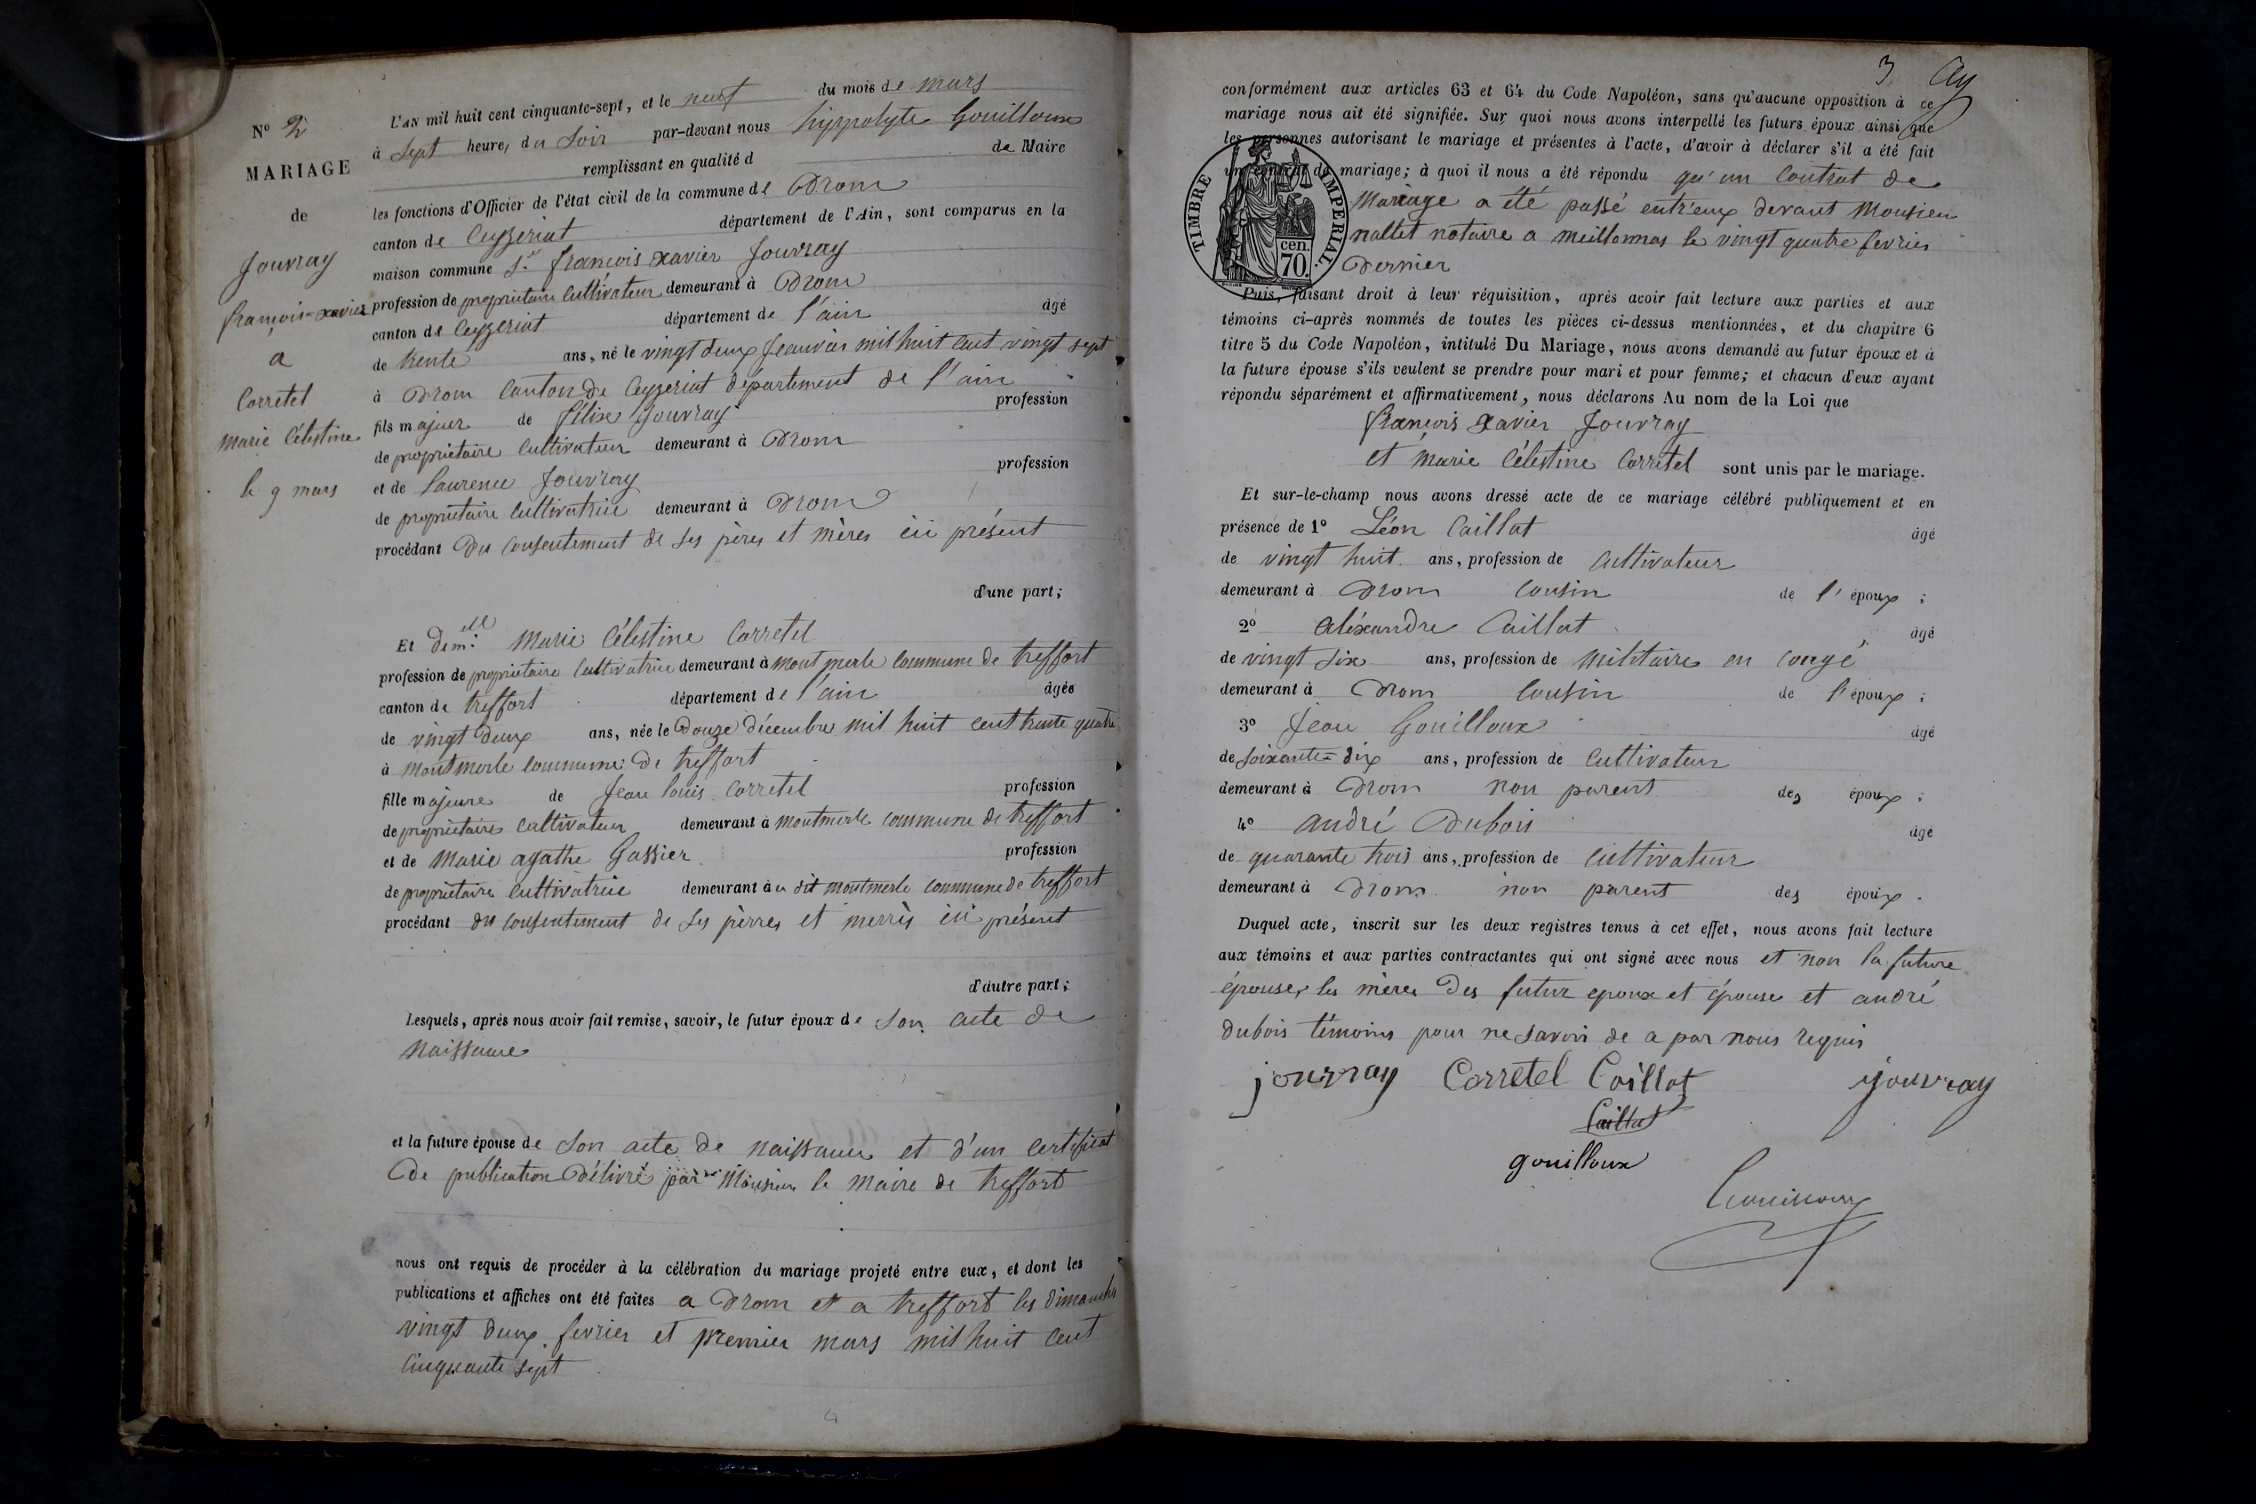 N° 2
MARIAGE
de
Jouvray
françois-xavier
a
Corretel
Marie Célestine
le 9 mars
L'AN mil huit cent cinquante-sept, et le neuf du mois de mars
à Sept heures du Soir par-devant nous hyppolyte Gouilloux
remplissant en qualité d de Maire
les fonctions d'Officier de l'état civil de la commune de Drom
canton de Ceyzeriat département de l'Ain, sont comparus en la
maison commune Sr françois xavier Jouvray
profession de propriétaire Cultivateur demeurant à Drom
canton de Ceyzeriat département de l'ain âgé
de trente ans, né le vingt deux Jeanvier mil huit cent vingt sept
à Drom Canton de Ceyzeriat département de l'ain
fils majeur de félix Jouvray profession
de propriétaire Cultivateur demeurant à Drom
et de Laurence Jouvray profession
de propriétaire Cultivatrice demeurant à Drom
procédant du consentement de ses pères et mères ici présent
d'une part;
Et demelle Marie Célestine Corretel
profession de propriétaire Cultivatrice demeurant à mont merle commune de treffort
canton de treffort département de l'ain âgée
de vingt deux ans, née le Douze décembre mil huit cent trente quatre
à montmerle commune de treffort
fille majeure de Jean louis Corretel profession
de propriétaire cultivateur demeurant à montmerle commune de treffort
et de Marie agathe Gassier profession
de propriétaire cultivatrice demeurant à u dit montmerle commune de treffort
procédant du consentement de ses pèrres et merrès ici présent
d'autre part;
Lesquels, après nous avoir fait remise, savoir, le futur époux de son acte de
Naissance
et la future épouse de son acte de naissance et d'un certificat
de publication Délivré par Monsieur le maire de treffort
nous ont requis de procéder à la célébration du mariage projeté entre eux, et dont les
publications et affiches ont été faites a Drom et a treffort les dimanche
vingt deux fevrier et premier mars mil huit cent
cinquante sept
3
conformément aux articles 63 et 64 du Code Napoléon, sans qu'aucune opposition à ce
mariage nous ait été signifiée. Sur quoi nous avons interpellé les futurs époux ainsi que
les personnes autorisant le mariage et présentes à l'acte, d'avoir à déclarer s'il a été fait
un contrat de mariage; à quoi il nous a été répondu qu'un Contrat de
Mariage a été passé entr'eux devant Monsieur
nallet notaire a meillonnas le vingt quatre fevrier
Dernier
TIMBRE IMPERIAL.
cen.
70.
Puis, faisant droit à leur réquisition, après avoir fait lecture aux parties et aux
témoins ci-après nommés de toutes les pièces ci-dessus mentionnées, et du chapitre 6
titre 5 du Code Napoléon, intitulé Du Mariage, nous avons demandé au futur époux et à
la future épouse s'ils veulent se prendre pour mari et pour femme; et chacun d'eux ayant
répondu séparément et affirmativement, nous déclarons Au nom de la Loi que
françois Xavier Jouvray
et marie Célestine Corretel sont unis par le mariage.
Et sur-le-champ nous avons dressé acte de ce mariage célébré publiquement et en
présence de 1° Léon Caillat âgé
de vingt huit ans, profession de Cultivateur
demeurant à Drom Cousin de l'époux;
2° aléxandre Caillat âgé
de vingt six ans, profession de militaire en congé
demeurant à Drom Cousin de l'époux;
3° Jean Gouilloux âgé
de soixante=dix ans, profession de Cultivateur
demeurant à Drom Non parent des époux;
4° andré Dubois âgé
de quarante trois ans, profession de Cultivateur
demeurant à Drom non parent des époux.
Duquel acte, inscrit sur les deux registres tenus à cet effet, nous avons fait lecture
aux témoins et aux parties contractantes qui ont signé avec nous et non la future
épouse, les mères Des futur epoux et épouse et andré
dubois témoins pour ne savoir de a par nous requis
jouvray Corretel Caillat jouvray
Caillat
gouilloux
Gouilloux